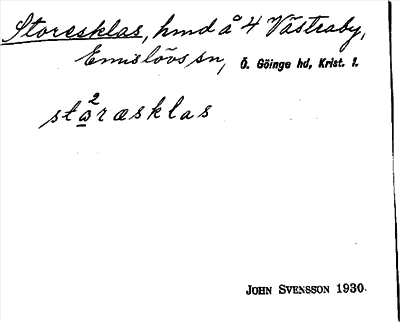 Storesklas, hmd å 4 Västraby,
Emislövs sn, Ö. Göinge hd, Krist. l.
sta²ræsklas
JOHN SVENSSON 1930.